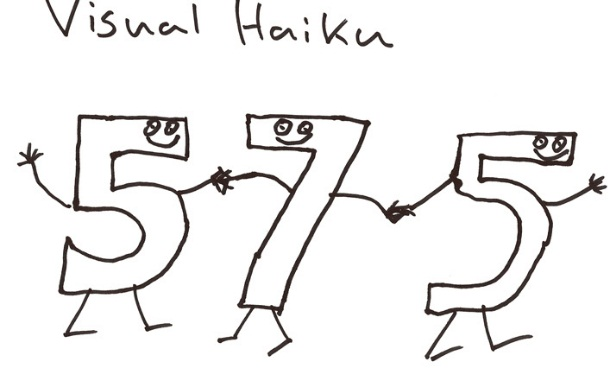 Visual Haiku
5 7 5